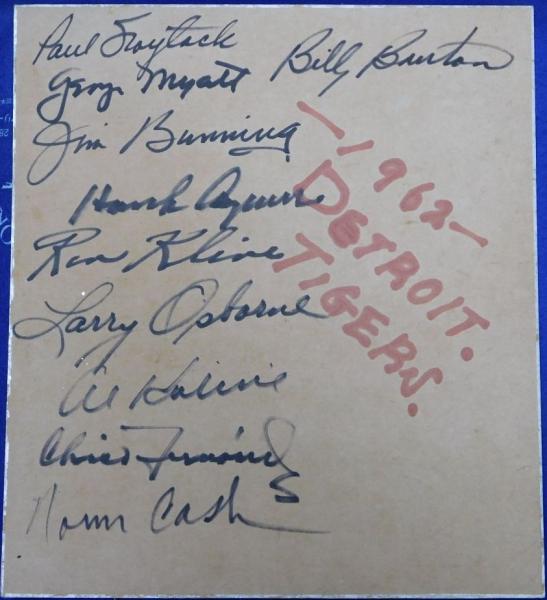 Paul Foytack
Billy Bruton
George Myatt
Jim Bunning
Hank Aguirre
Ron Kline
Larry Osborne
Al Kaline
Chico Fernández
Norm Cash
—1962—
DETROIT.
TIGERS.